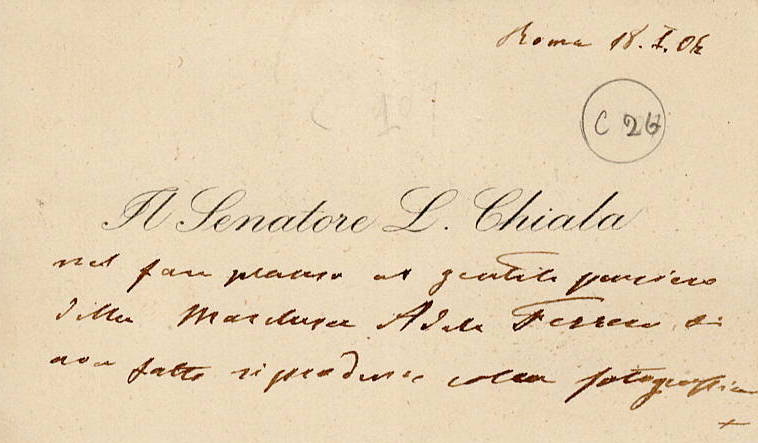 Roma 18.I.04
C 26
Il Senatore L. Chiala
nel far plauso al gentile pensiero
della Marchesa Adele Ferrero di
aver fatto riprodurre colla fotografia
+